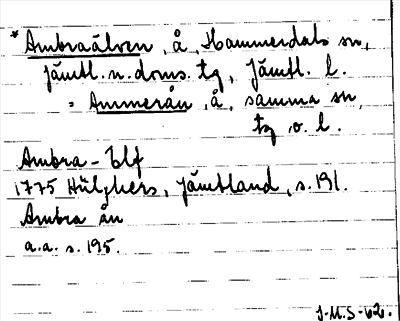 * Ambraälven, å, Hammerdals sn,
jämtl. n. doms. tg, Jämtl. l.
= Ammerån, å, samma sn,
tg o. l.
Ambra-Elf
1775 Hülphers, Jämtland, s. 191.
Ambra ån
a.a. s. 195.
J.M.S-62.